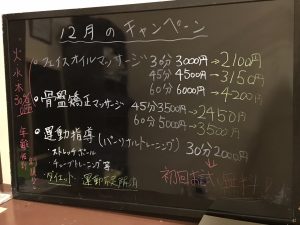 12月のキャンペーン
・フェイスオイルマッサージ 30分 3000円→2100円
45分 4500円→3150円
60分 6000円→4200円
・骨盤矯正マッサージ 45分 3500円→2450円
60分 5000円→3500円
・運動指導(パーソナルトレーニング)
30分 2000円
・ストレッチポール
・チューブトレーニング 等
・ダイエット・運動不足解消
初回お試し無料!
火
水
木
年齢